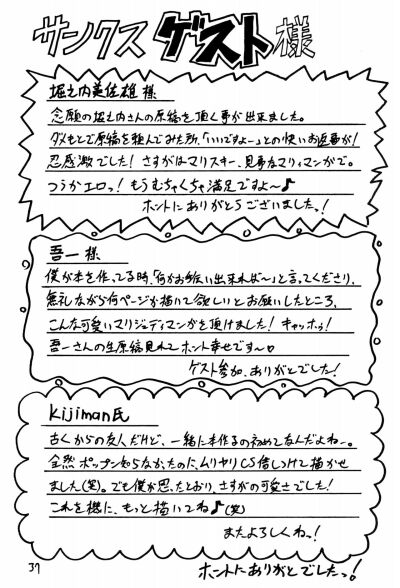 サンクス ゲスト 様
堀之内美佐雄 様
念願の堀之内さんの原稿を頂く事が出来ました。
ダメもとで原稿を頼んでみた所、「いいですよー」との快いお返事が!
感激でした! さすがはマリスキー、見事なマリィマンガで。
つうかエロっ! もうむちゃくちゃ満足ですよ〜♪
ホントにありがとうございましたっ!
吾一 様
僕が本を作ってる時、「何かお手伝い出来れば〜」と言ってくださり、
無礼ながら何ページか描いて欲しいとお願いしたところ、
こんな可愛いマリジュディマンガを頂けました! キャッホゥ!
吾一さんの生原稿見れてホント幸せです〜♡
ゲスト参加、ありがとでした!
Kijiman氏
古くからの友人だけど、一緒に本作るの初めてなんだよねー。
全然ポップン知らなかったのに、ムリヤリCS借しつけて描かせ
ました(笑)。でも僕が思ったとおり、さすがの可愛さでした!
これを機に、もっと描いてね♪(笑)
またよろしくねっ!
37
ホントにありがとでしたっ!